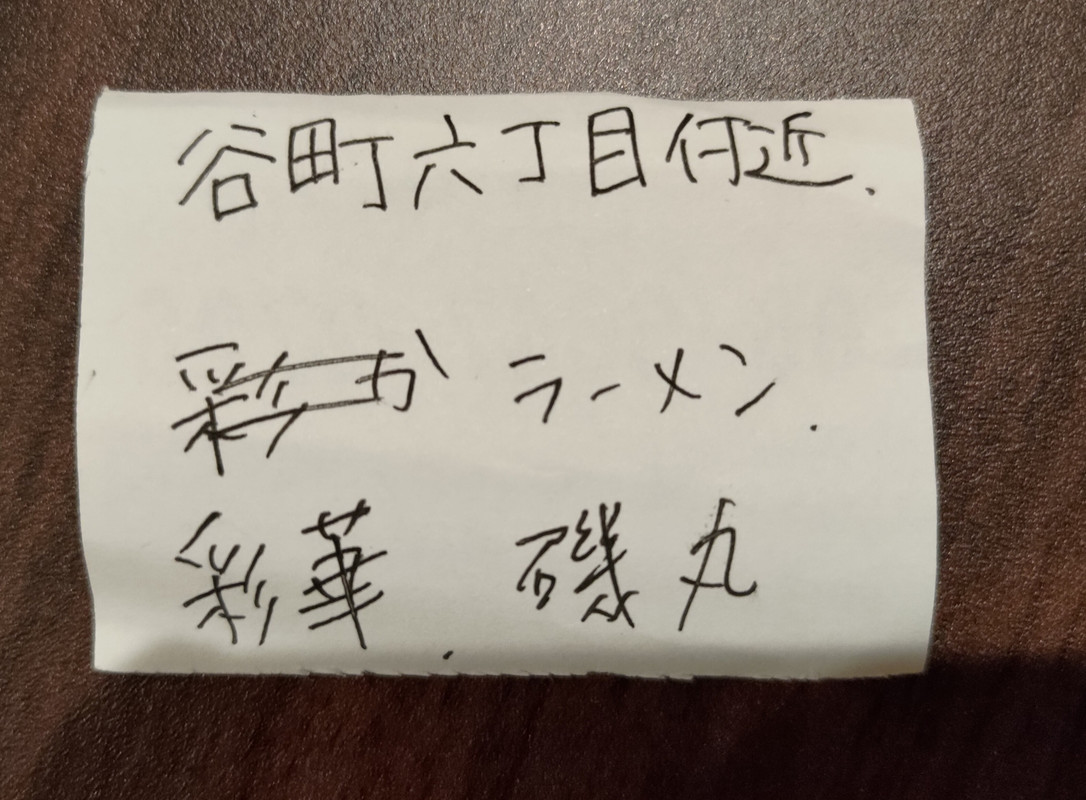 谷町六丁目付近.
彩か ラーメン.
彩華. 磯丸